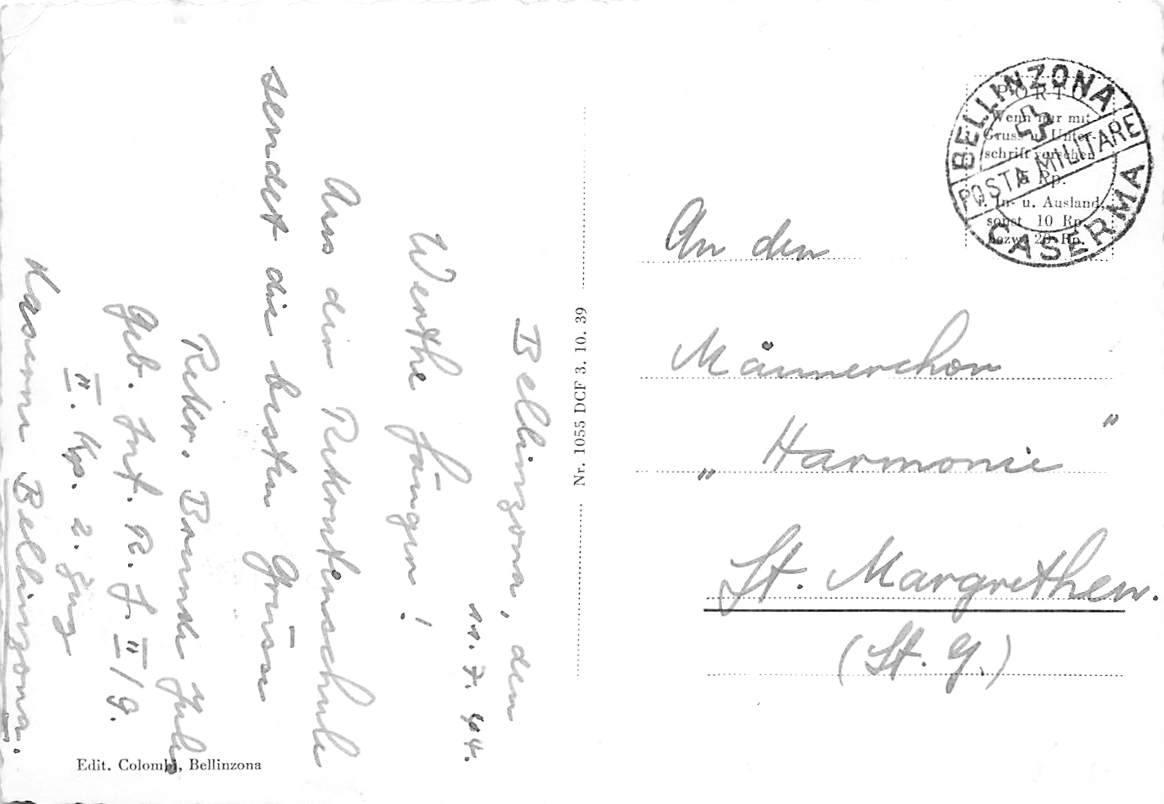 Bellinzona, den
11. 7. 44.
Werthe Sänger!
Aus der Rekrutenschule
sendet die besten Grüsse
Rekr. Juli
Geb. Inf. R. S. II/9.
II. Kp. 2. Zug
Kaserne Bellinzona.
Edit. Colombi, Bellinzona
Nr. 1055 DCF 3. 10. 39
BELLINZONA
POSTA MILITARE
CASERMA
PORTO
Wenn nur mit
Gruss u. Unter-
schrift versehen
Rp.
f. In- u. Ausland,
sonst 10 Rp.
bezw. 20 Rp.
An den
Männerchor
„Harmonie"
St. Margrethen.
(St. G.)